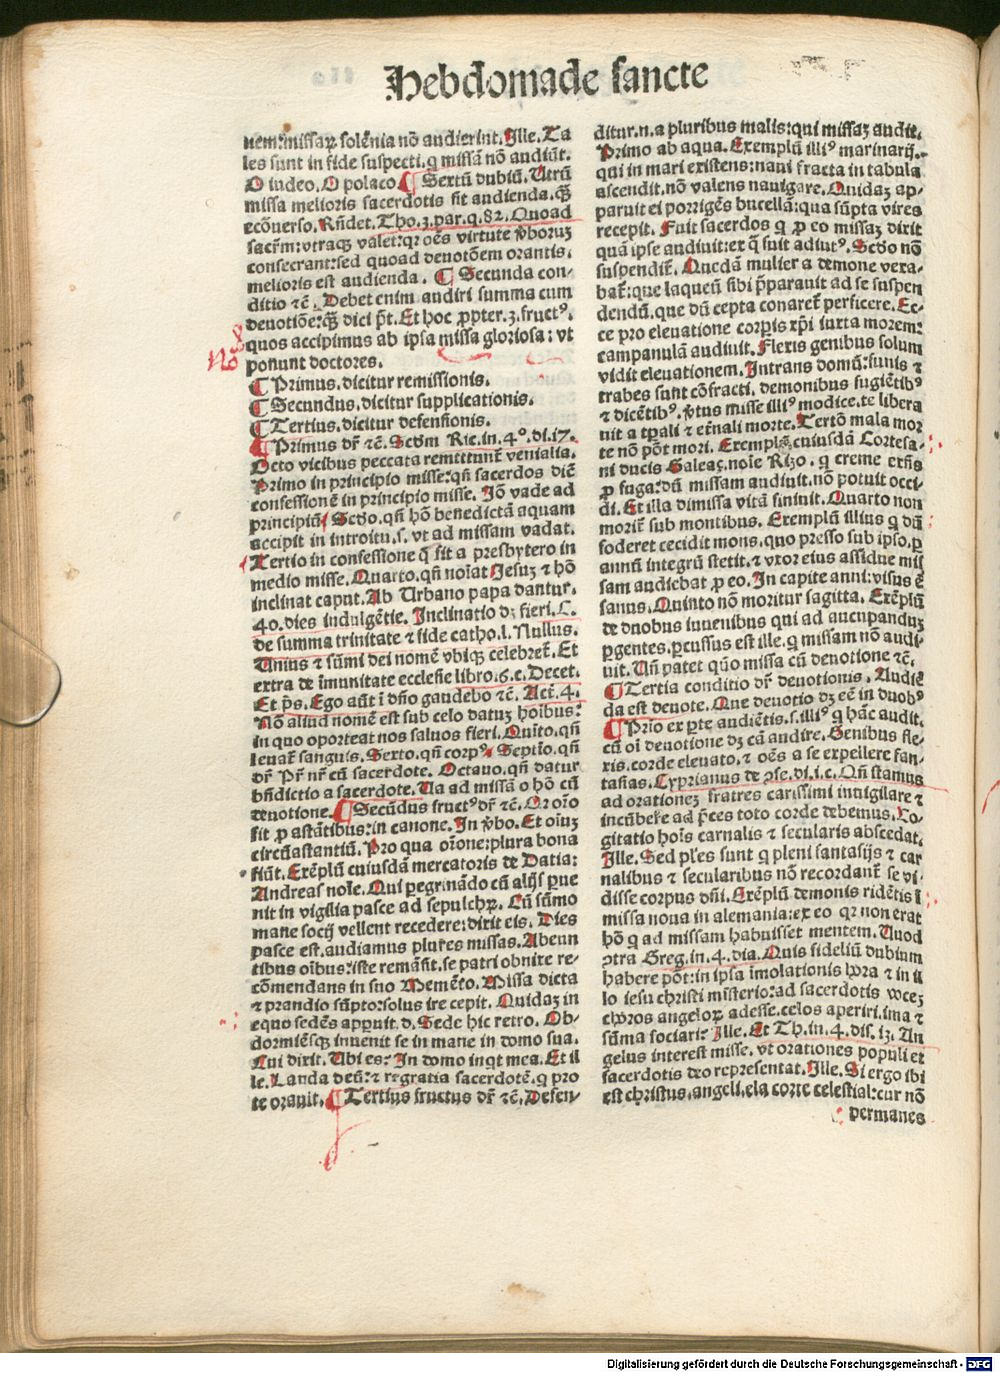 Hebdomade sancte
uem: missaꝝ solẽnia nõ audierint. Ille. Ta
les sunt in fide suspecti. q missã nõ audiũt.
O iudeo. O polaco. ¶ Sextũ dubiũ. Utrũ
missa melioris sacerdotis sit audienda. ꝙ̃
ecõuerso. Rñdet. Tho. 3. par. q. 82. Quoad
sacrm: vtraqꝫ valet: qꝛ oẽs virtute ṽboruꝫ
consecrant: sed quoad deuotõem orantis.
melioris est audienda. ¶ Secunda con-
ditio ⁊c̃. Debet enim audiri summa cum
deuotiõe: ꝙ̃ dici p̃t. Et hoc ꝓpter. 3. fructꝰ.
quos accipimus ab ipsa missa gloriosa: vt
ponunt doctores.
¶ Primus. dicitur remissionis.
¶ Secundus. dicitur supplicationis.
¶ Tertius. dicitur defensionis.
¶ Primus dr̃ ⁊c̃. Scdm Ric. in. 4º. di. 17.
Octo vicibus peccata remittunt̃ venialia.
Primo in principio misse: qñ sacerdos dicit
confessionẽ in principio misse. Iõ vade ad
principiũ. Scdo. qñ hõ benedictã aquam
accipit in introitu. s. vt ad missam vadat.
Tertio in confessione q̃ fit a presbytero in
medio misse. Quarto. qñ noĩat Jesuꝫ ⁊ hõ
inclinat caput. Ab Urbano papa dantur.
40. dies indulgẽtie. Inclinatio dꝫ fieri. C.
de summa trinitate ⁊ fide catho. l. Nullus.
Unius ⁊ sũmi dei nomẽ vbiqꝫ celebret̃. Et
extra de ĩmunitate ecclesie libro. 6. c. Decet.
Et p̃s. Ego aũt ĩ dño gaudebo ⁊c̃. Act̃. 4.
Nõ aliud nomẽ est sub celo datuꝫ hoĩbus:
in quo oporteat nos saluos fieri. Quĩto. qñ
leuat̃ sanguis. Sexto. qñ corpꝰ. Septĩo. qñ
dr̃ Pr̃ nr̃ cũ sacerdote. Octauo. qñ datur
bñdictio a sacerdote. Ua ad missã o hõ cũ
deuotione. ¶ Secũdus fructꝰ dr̃ ⁊c̃. Qꝛ oĩo
fit ꝓ astãtibus: in canone. In ṽbo. Et oĩuꝫ
circũastantiũ. Pro qua oĩone: plura bona
fiũt. Exẽplũ cuiusdã mercatoris de Datia:
Andreas noĩe. Qui ꝑegrinãdo cũ alijs ꝑue
nit in vigilia pasce ad sepulchꝝ. Cũ sũmo
mane socij vellent recedere: dixit eis. Dies
pasce est. audiamus plures missas. Abeun
tibus oĩbus: iste remãsit. se patri obnixe re-
cõmendans in suo Memẽto. Missa dicta
⁊ prandio sũpto: solus ire cepit. Quidaꝫ in
equo sedẽs apꝑuit. d. Sede hic retro. Ob-
dormiẽsqꝫ inuenit se in mane in domo sua.
Cui dixit. Ubi es? In domo inqt mea. Et il
le. Lauda deũ: ⁊ regratia sacerdotẽ. q pro
te orauit. ¶ Tertius fructus dr̃ ⁊c̃. Defen-
ditur. n. a pluribus malis: qui missaꝫ audit.
Primo ab aqua. Exemplũ illiꝰ marinarij.
qui in mari existens: naui fracta in tabula
ascendit. nõ valens nauigare. Quidaꝫ ap-
paruit ei porrigẽs bucellã: qua sũpta vires
recepit. Fuit sacerdos q ꝓ eo missaꝫ dixit
quã ipse audiuit: ex q̃ fuit adiutꝰ. Scdo nõ
suspendit̃. Quedã mulier a demone vexa-
bat̃: que laqueũ sibi p̃parauit ad se suspen
dendũ. que dũ cepta conaret̃ perficere. Ec-
ce pro eleuatione corꝑis xp̃i iuxta morem:
campanulã audiuit. Flexis genibus solum
vidit eleuationem. Intrans domũ: funis ⁊
trabes sunt cõfracti. demonibus fugiẽtibꝰ
⁊ dicẽtibꝰ. ṽtus misse illiꝰ modice. te libera
uit a tꝑali ⁊ et̃nali morte. Tertõ mala mor
te nõ põt mori. Exemplũ cuiusdã Cortesa-
ni ducis Galeaꝫ. noĩe Rizo. q creme exñs
ꝓ fuga: dũ missam audiuit. nõ potuit occi
di. Et illa dimissa vitã finiuit. Quarto non
morit̃ sub montibus. Exemplũ illius q dũ
foderet cecidit mons. quo presso sub ipso. ꝑ
annũ integrũ stetit. ⁊ vxor eius assidue mis
sam audiebat ꝓ eo. In capite anni: visus ẽ
sanus. Quinto nõ moritur sagitta. Exẽplũ
de duobus iuuenibus qui ad aucupanduꝫ
ꝑgentes. ꝑcussus est ille. q missam nõ audi-
uit. Uñ patet quõ missa cũ deuotione ⁊c̃.
¶ Tertia conditio dr̃ deuotionis. Audiẽ
da est deuote. Que deuotio dꝫ eẽ in duobꝰ
¶ Prĩo ex ꝑte audiẽtis. s. illiꝰ q hãc audit.
cũ oĩ deuotione dꝫ eã audire. Genibus fle-
xis. corde eleuato. ⁊ oẽs a se expellere fan-
tasias. Cyprianus de ↄse. di. i. c. Qñ stamus
ad orationeꝫ fratres carissimi inuigilare ⁊
incũbere ad p̃ces toto corde debemus. Co-
gitatio hoĩs carnalis ⁊ secularis abscedat.
Ille. Sed pl̃es sunt q pleni fantasijs ⁊ car
nalibus ⁊ secularibus nõ recordant̃ se vi-
disse corpus dñi. Exẽplũ demonis ridẽtis ĩ
missa noua in alemania: ex eo qꝛ non erat
hõ q ad missam habuisset mentem. Quod
ↄtra Greg. in. 4. dia. Quis fideliũ dubium
habere põt: in ipsa ĩmolationis hora ⁊ in il
lo iesu christi misterio: ad sacerdotis voceꝫ
choros angeloꝝ adesse. celos aperiri. ima ⁊
sũma sociari? Ille. Et Th. in. 4. dis. 13. An
gelus interest misse. vt orationes populi et
sacerdotis deo representat. Ille. Si ergo ibi
est christus. angeli. ⁊ la corte celestial: cur nõ
permanes
Digitalisierung gefördert durch die Deutsche Forschungsgemeinschaft - DFG